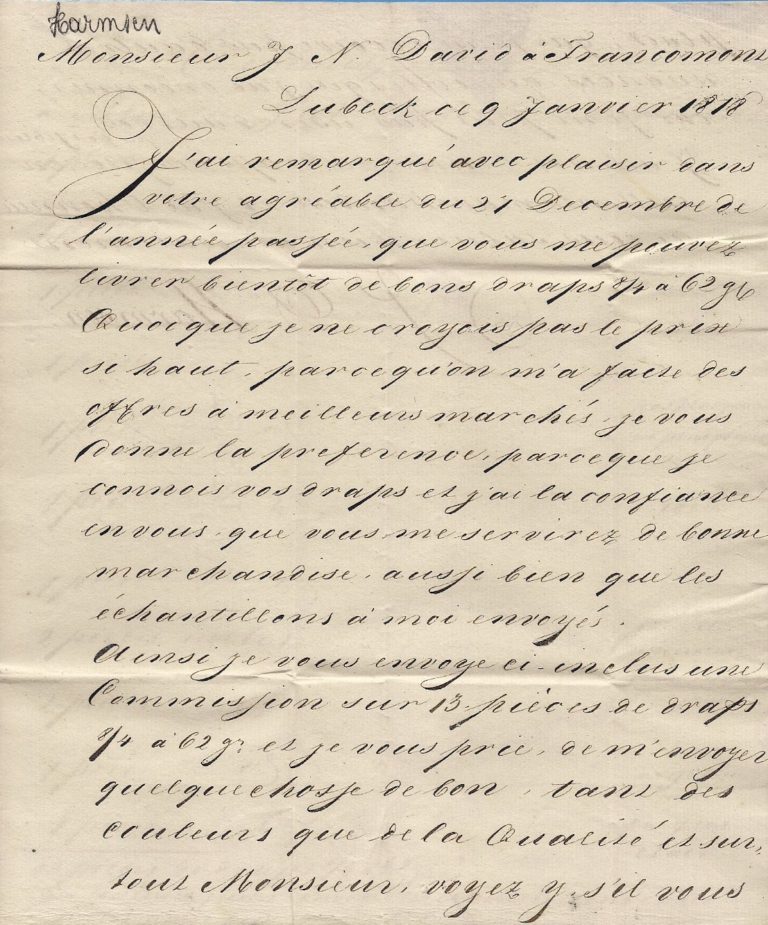 Harmsen
Monsieur J N. David à Francomont
Lubeck ce 9 Janvier 1818
J'ai remarqué avec plaisir dans
votre agréable du 27 Decembre de
l'année passée, que vous me pouvez
livrer bientôt de bons draps 8/4 à 62 gb
Quocque je ne croyois pas le prix
si haut, parcequ'on m'a faite des
offres à meilleurs marchés, je vous
donne la preference, parceque je
connois vos draps et j'ai la confiance
en vous, que vous me servirez de bonne
marchandise, aussi bien que les
échantillons à moi envoyés.
Ainsi je vous envoye ci-inclus une
Commission sur 13 pièces de draps
8/4 à 62 gr. et je vous prie, de m'envoyer
quelquechosse de bon, tant des
couleurs que de la Qualité et sur,
tout Monsieur, voyez y, s'il vous